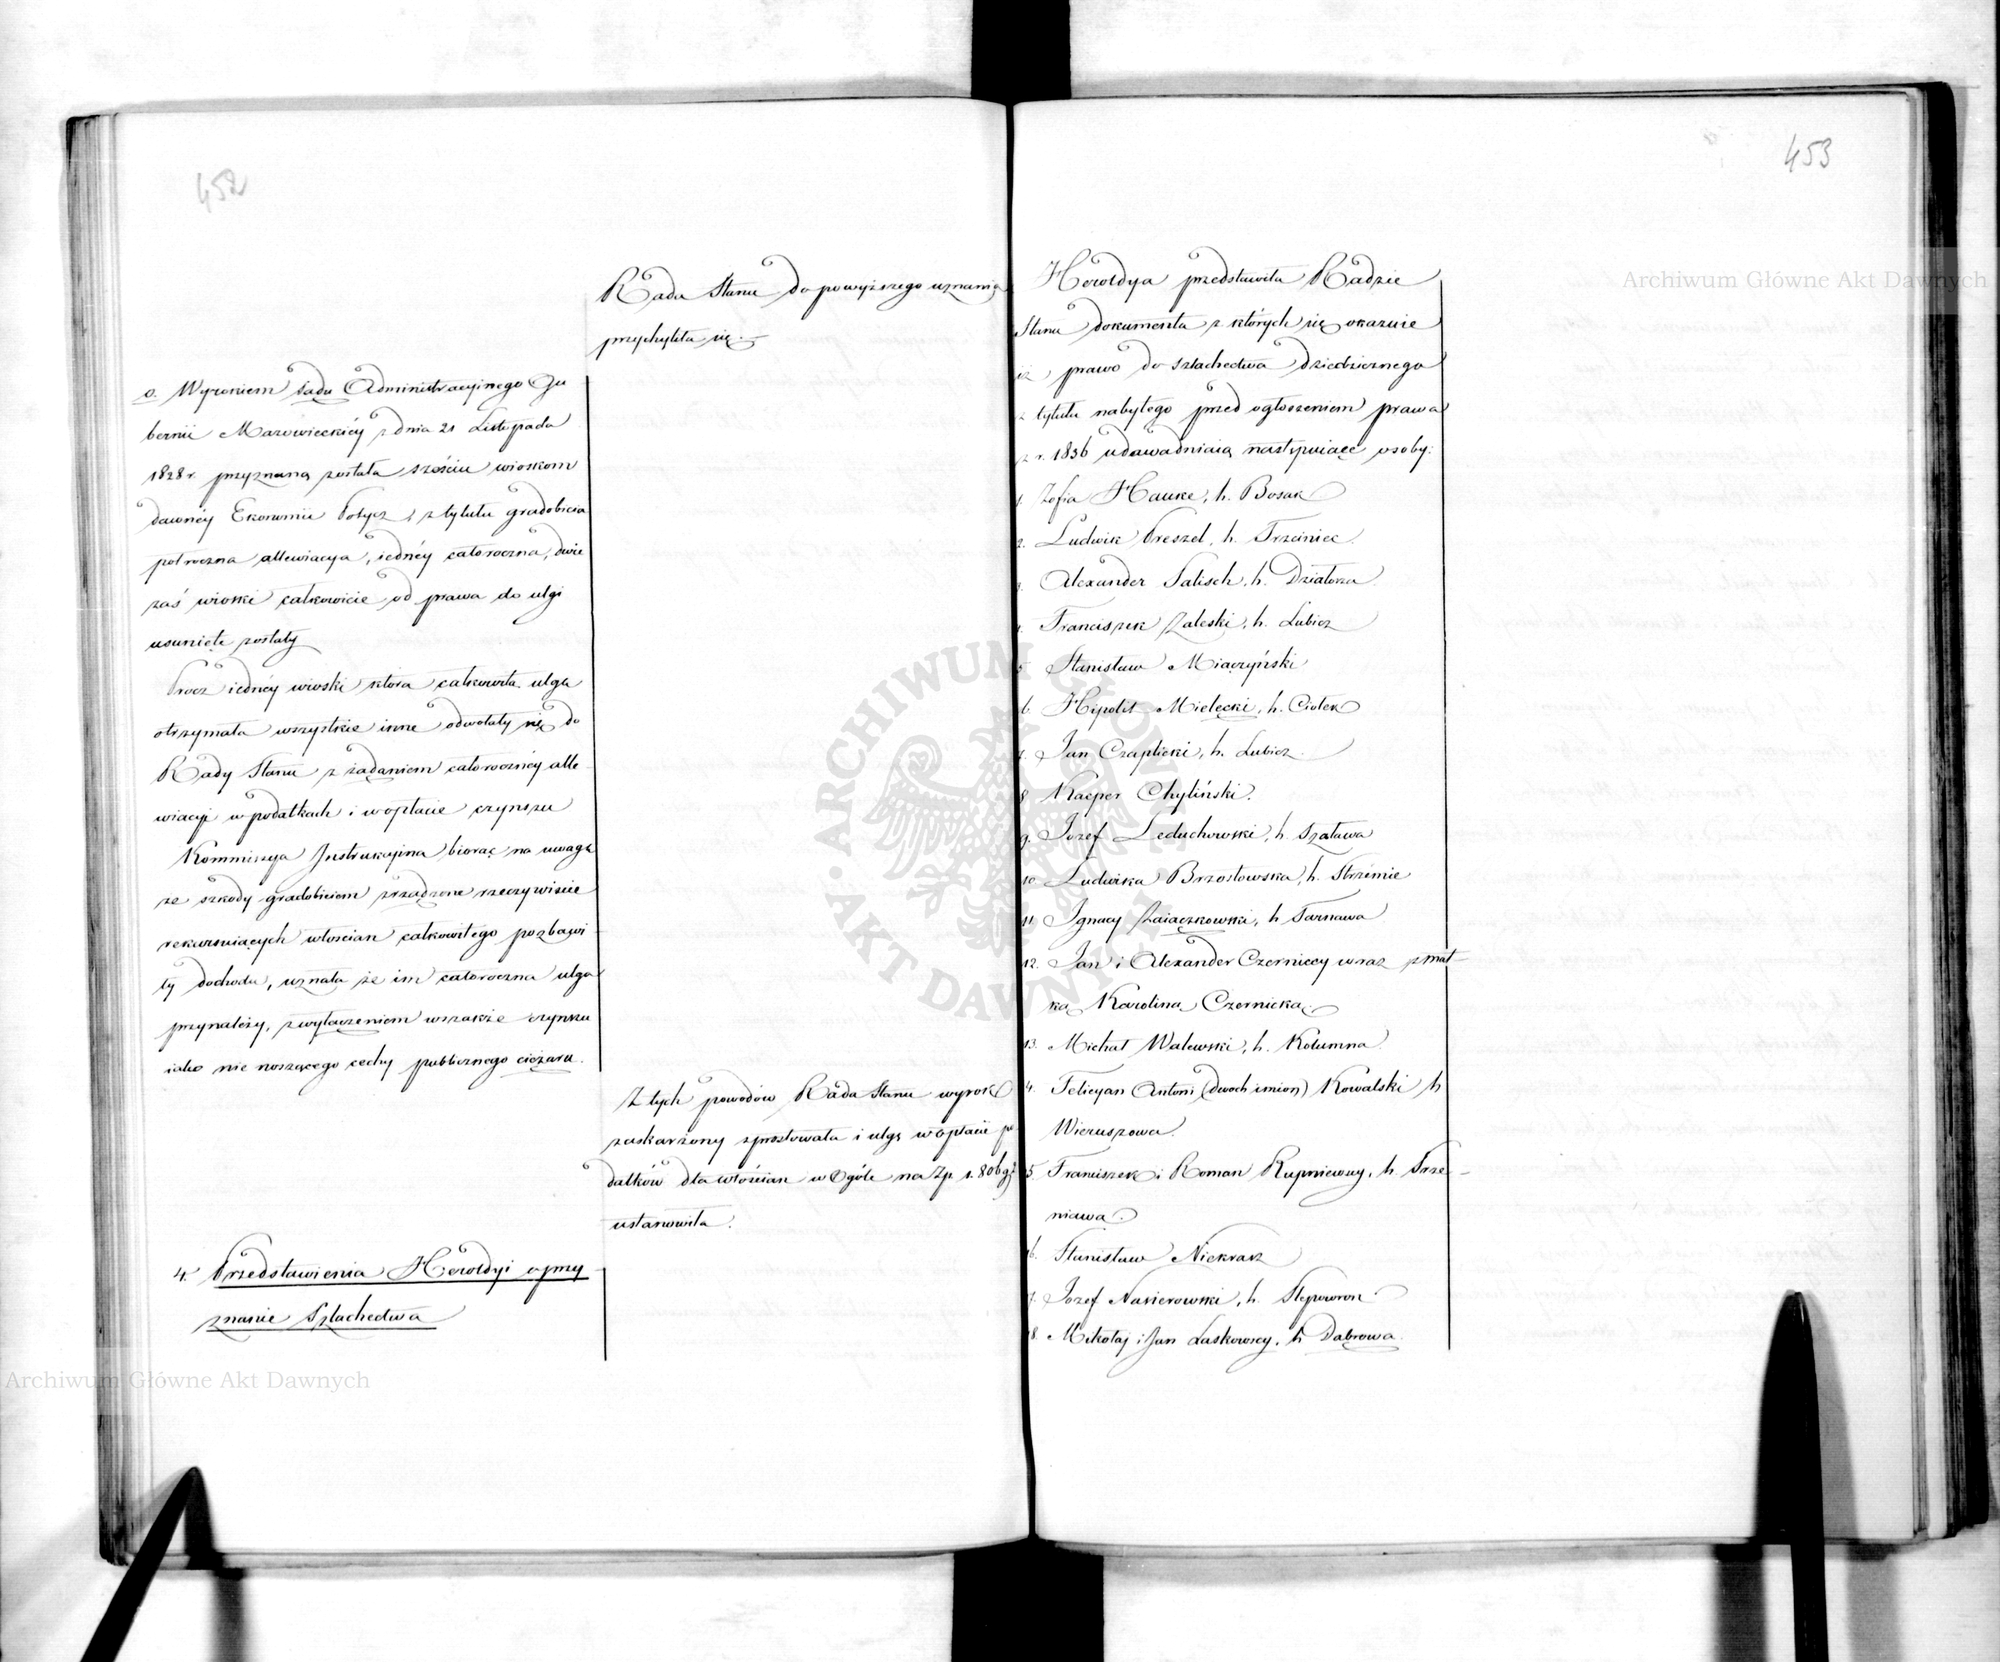 452
Rada Stanu do powyższego uznania
przychyliła się.
o. Wyrokiem Sądu Administracyjnego Gu
bernii Mazowieckiéy z dnia 21 Listopada
1828 r. przyznaną została sześciu wioskom
dawnéy Ekonomii Potycz z tytułu gradobicia
półroczna allewiacya, iednéy całoroczna, dwie
zaś wioski całkowicie od prawa do ulgi
usunięte zostały
Prócz iednéy wioski która całkowitą ulgę
otrzymała wszystkie inne odwołały się do
Rady Stanu z żądaniem całorocznéy alle
wiacyi w podatkach i w opłacie czynszu
Kommissya Instrukcyina biorąc na uwagę
że szkody gradobiciem zrządzone rzeczywiście
rekuruiących włościan całkowitego pozbawi
ły dochodu, uznała że im całoroczna ulga
przynależy, z wyłączeniem wszakże czynszu
iako nie noszącego cechy publicznego ciężaru.
Z tych powodów Rada Stanu wyrok
zaskarżony sprostowała i ulgę w opłacie po
datków dla włościan w ogóle na Zp. 1.806 g
ustanowiła.
4. Przedstawienia Heroldyi o przy
znanie Szlachectwa
453
Heroldya przedstawiła Radzie
Stanu dokumenta z których się okazuie
iż prawo do szlachectwa dziedzicznego
z tytułu nabytego przed ogłoszeniem prawa
z r. 1836 udowadniaią następuiące osoby:
1. Zofia Hauke, h. Bosak
2. Ludwik Preszel, h. Trzciniec.
3. Alexander Salisch, h. Działosza
4. Franciszek Zaleski, h. Lubicz
5 Stanisław Miączyński
6. Hipolit Mielęcki, h. Ciołek
7. Jan Czaplicki, h. Lubicz.
8 Kacper Chyliński.
9. Józef Leduchowski, h. Szaława
10. Ludwika Brzostowska, h. Strzemie
11. Ignacy Zaiączkowski, h Tarnawa
12. Jan i Alexander Czerniccy wraz z mat-
ką Karoliną Czernicką.
13. Michał Walewski, h. Kolumna.
14. Felicyan Antoni (dwóch imion) Kowalski h
Wieruszowa.
15 Franciszek i Roman Rupniewscy, h. Szre-
niawa.
16. Stanisław Niekrasz
17. Józef Nasierowski, h. Slepowron
18. Mikołaj i Jan Laskowscy, h Dąbrowa.
Archiwum Główne Akt Dawnych
Archiwum Główne Akt Dawnych
ARCHIWUM GŁÓWNE · AKT DAWNYCH ·